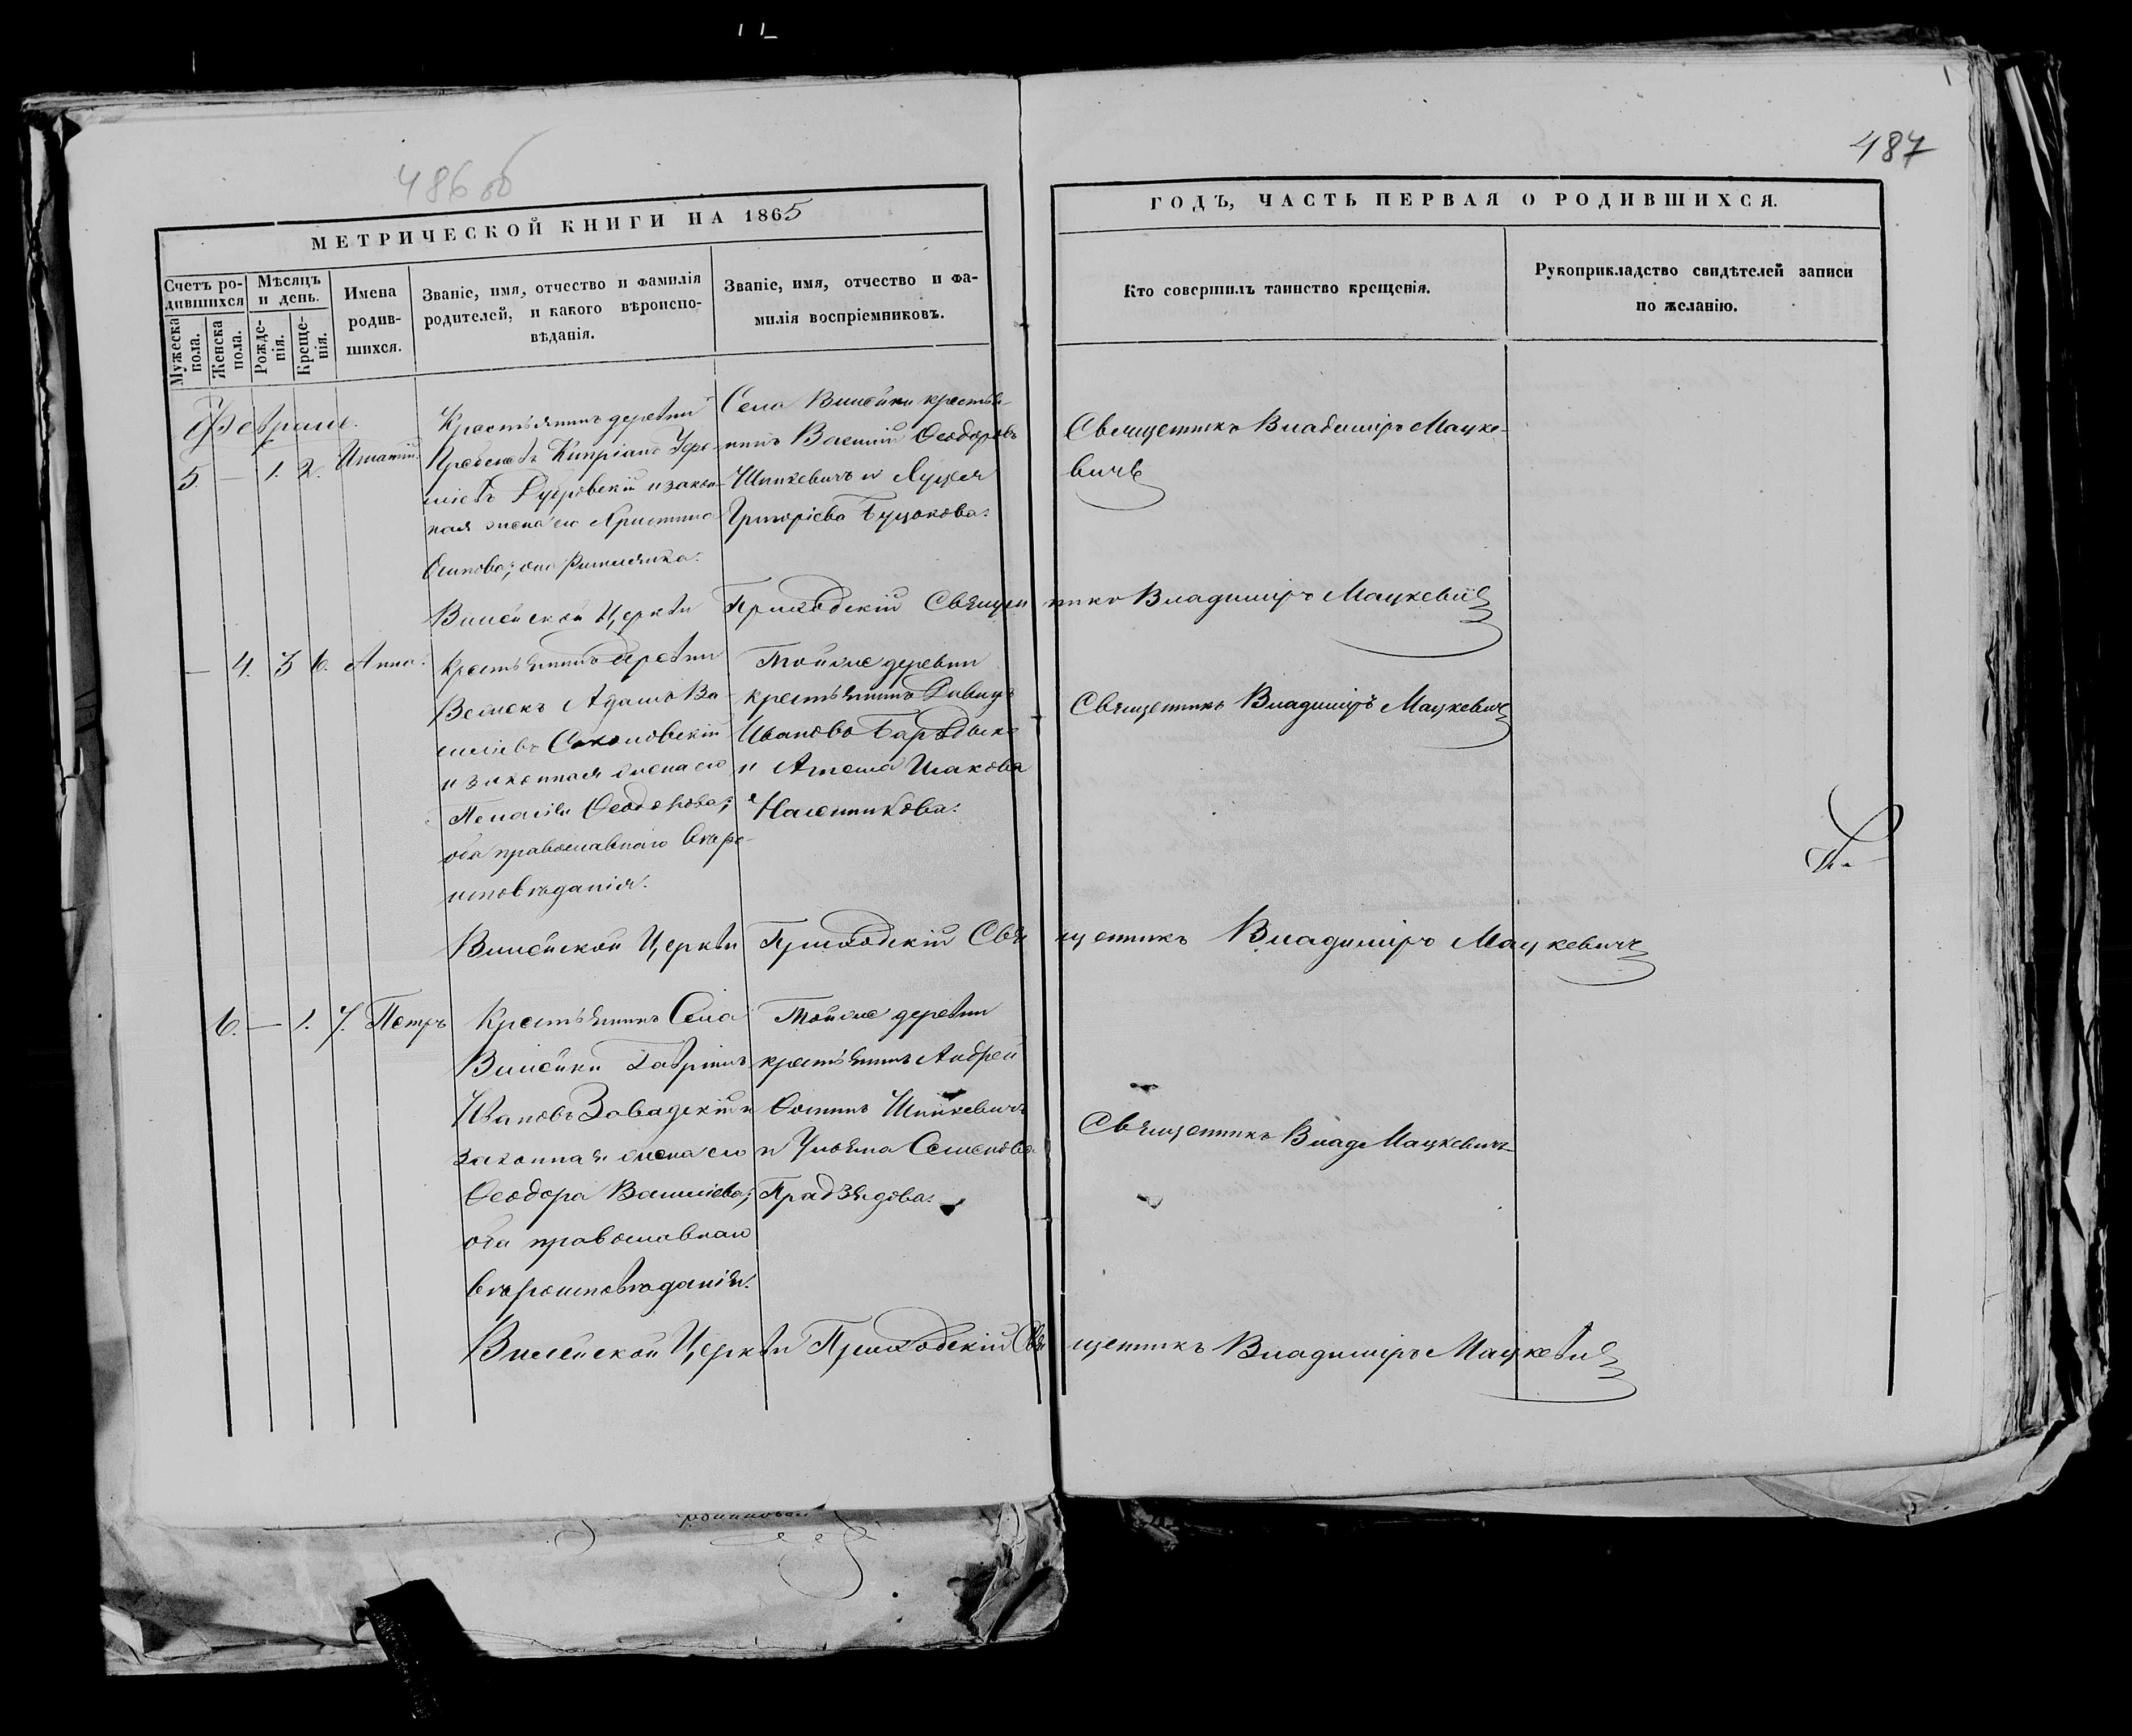 486 об
487
МЕТРИЧЕСКОЙ КНИГИ НА 1865
ГОДЪ, ЧАСТЬ ПЕРВАЯ О РОДИВШИХСЯ.
Счетъ ро-
дившихся
Мужеска
пола.
Женска
пола.
Мѣсяцъ
и день.
Рожде-
нія.
Креще-
нія.
Имена
родив-
шихся.
Званіе, имя, отчество и фамилія
родителей, и какого вѣроиспо-
вѣданія.
Званіе, имя, отчество и фа-
милія воспріемниковъ.
Кто совершилъ таинство крещенія.
Рукоприкладство свидѣтелей записи
по желанію.
Февраль.
5. — 1. 2. Игнатій.
Крестьянинъ деревни
Кипріанъ
и закон-
ная жена его Христина
Осипова; она Римлянка.
Села Вилейки крестья-
нинъ Василій Ѳеодоровъ
Шипкевичъ и Луцея
Григоріева Буцокова.
Священникъ Владиміръ Мацке-
вичъ
Вилейской Церкви Приходскій Священникъ Владиміръ Мацкевичъ
— 4. 3 6. Анна.
Крестьянинъ деревни
Адамъ Ва-
силіевъ Соколовскій
и законная жена его
Пелагія Ѳеодорова;
оба православнаго вѣро-
исповѣданія.
Тойже деревни
крестьянинъ Давидъ
Ивановъ
и Агнеша Исакова
Священникъ Владиміръ Мацкевичъ
Вилейской Церкви Приходскій Священникъ Владиміръ Мацкевичъ
6. — 1. 7. Петръ
Крестьянинъ Села
Вилейки Гавріилъ
Ивановъ Завадскій и
законная жена его
Ѳеодора Василіева;
оба православнаго
вѣроисповѣданія.
Тойже деревни
крестьянинъ Андрей
Осиповъ Шипкевичъ
и Ульяна Семенова
Прадзядова.
Священникъ Влад Мацкевичъ
Вилейской Церкви Приходскій Священникъ Владиміръ Мацкевичъ